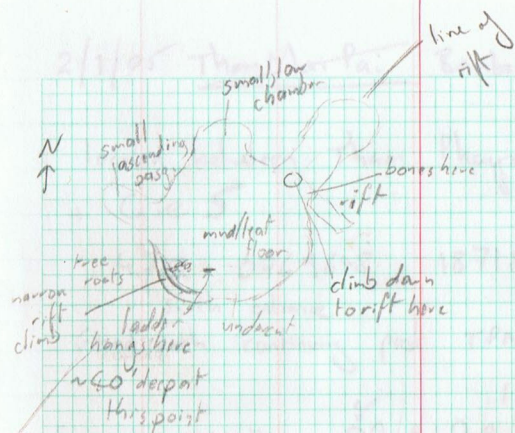 line of
rift
small low
chamber
N
small
ascending
passg
bones here
rift
mud/leaf
floor
climb down
to rift here
tree
roots
narrow
rift
climb
ladder
hangs here
undercut
this point